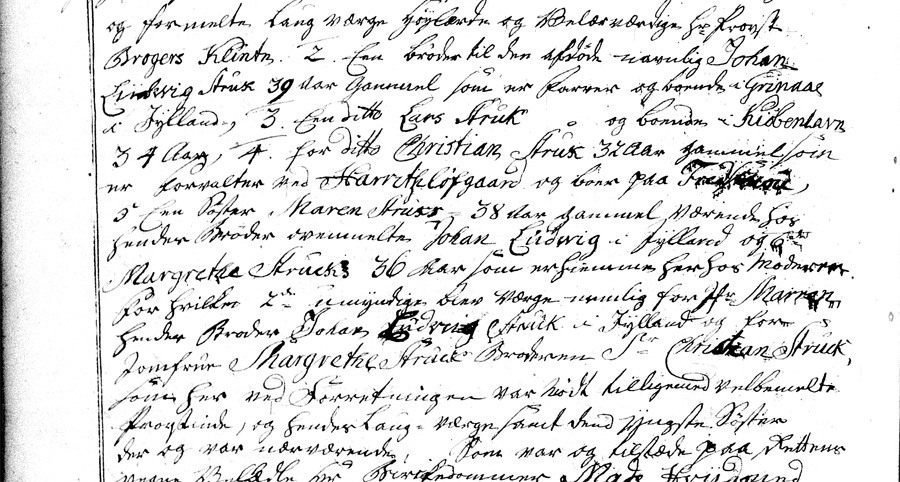 og formelte Laug værge Høylærde og Velærværdige Hr Provst
Brogers Klinte. 2. Een broder til den afdøde navnlig Johan
Ludevig Struk 39 Aar Gammel som er Farver og boende i Grinaae
i Jylland, 3 Een ditto Lars Struk og boende i Kiøbenhavn
34 Aar, 4. for ditto Christian Struk 32 Aar gammel som
er forvalter ved og boer paa
5 Een Søster Maren Struks 38 Aar gammel, Værende hos
hendes Broder ovenmelte Johan Ludvig i Jylland og 6te
Margrethe Strucks 36 Aar som er hiemme her hos Moderen
for hvilke 2de umyndige blev Værge nemlig for Jfr Marren
hendes Broder Johan Ludvig Struk i Jylland og for
Jomfrue Margrethe Struck Broderen Sr Christian Struck,
som her ved Forretningen var Nødt tilligemed velbemelte
Provstinde, og hendes Laug-værge samt dend yngste Søster
der og var nærværende, Som var og tilstæde paa Rettens
vegne Hr Birkedommer Mads